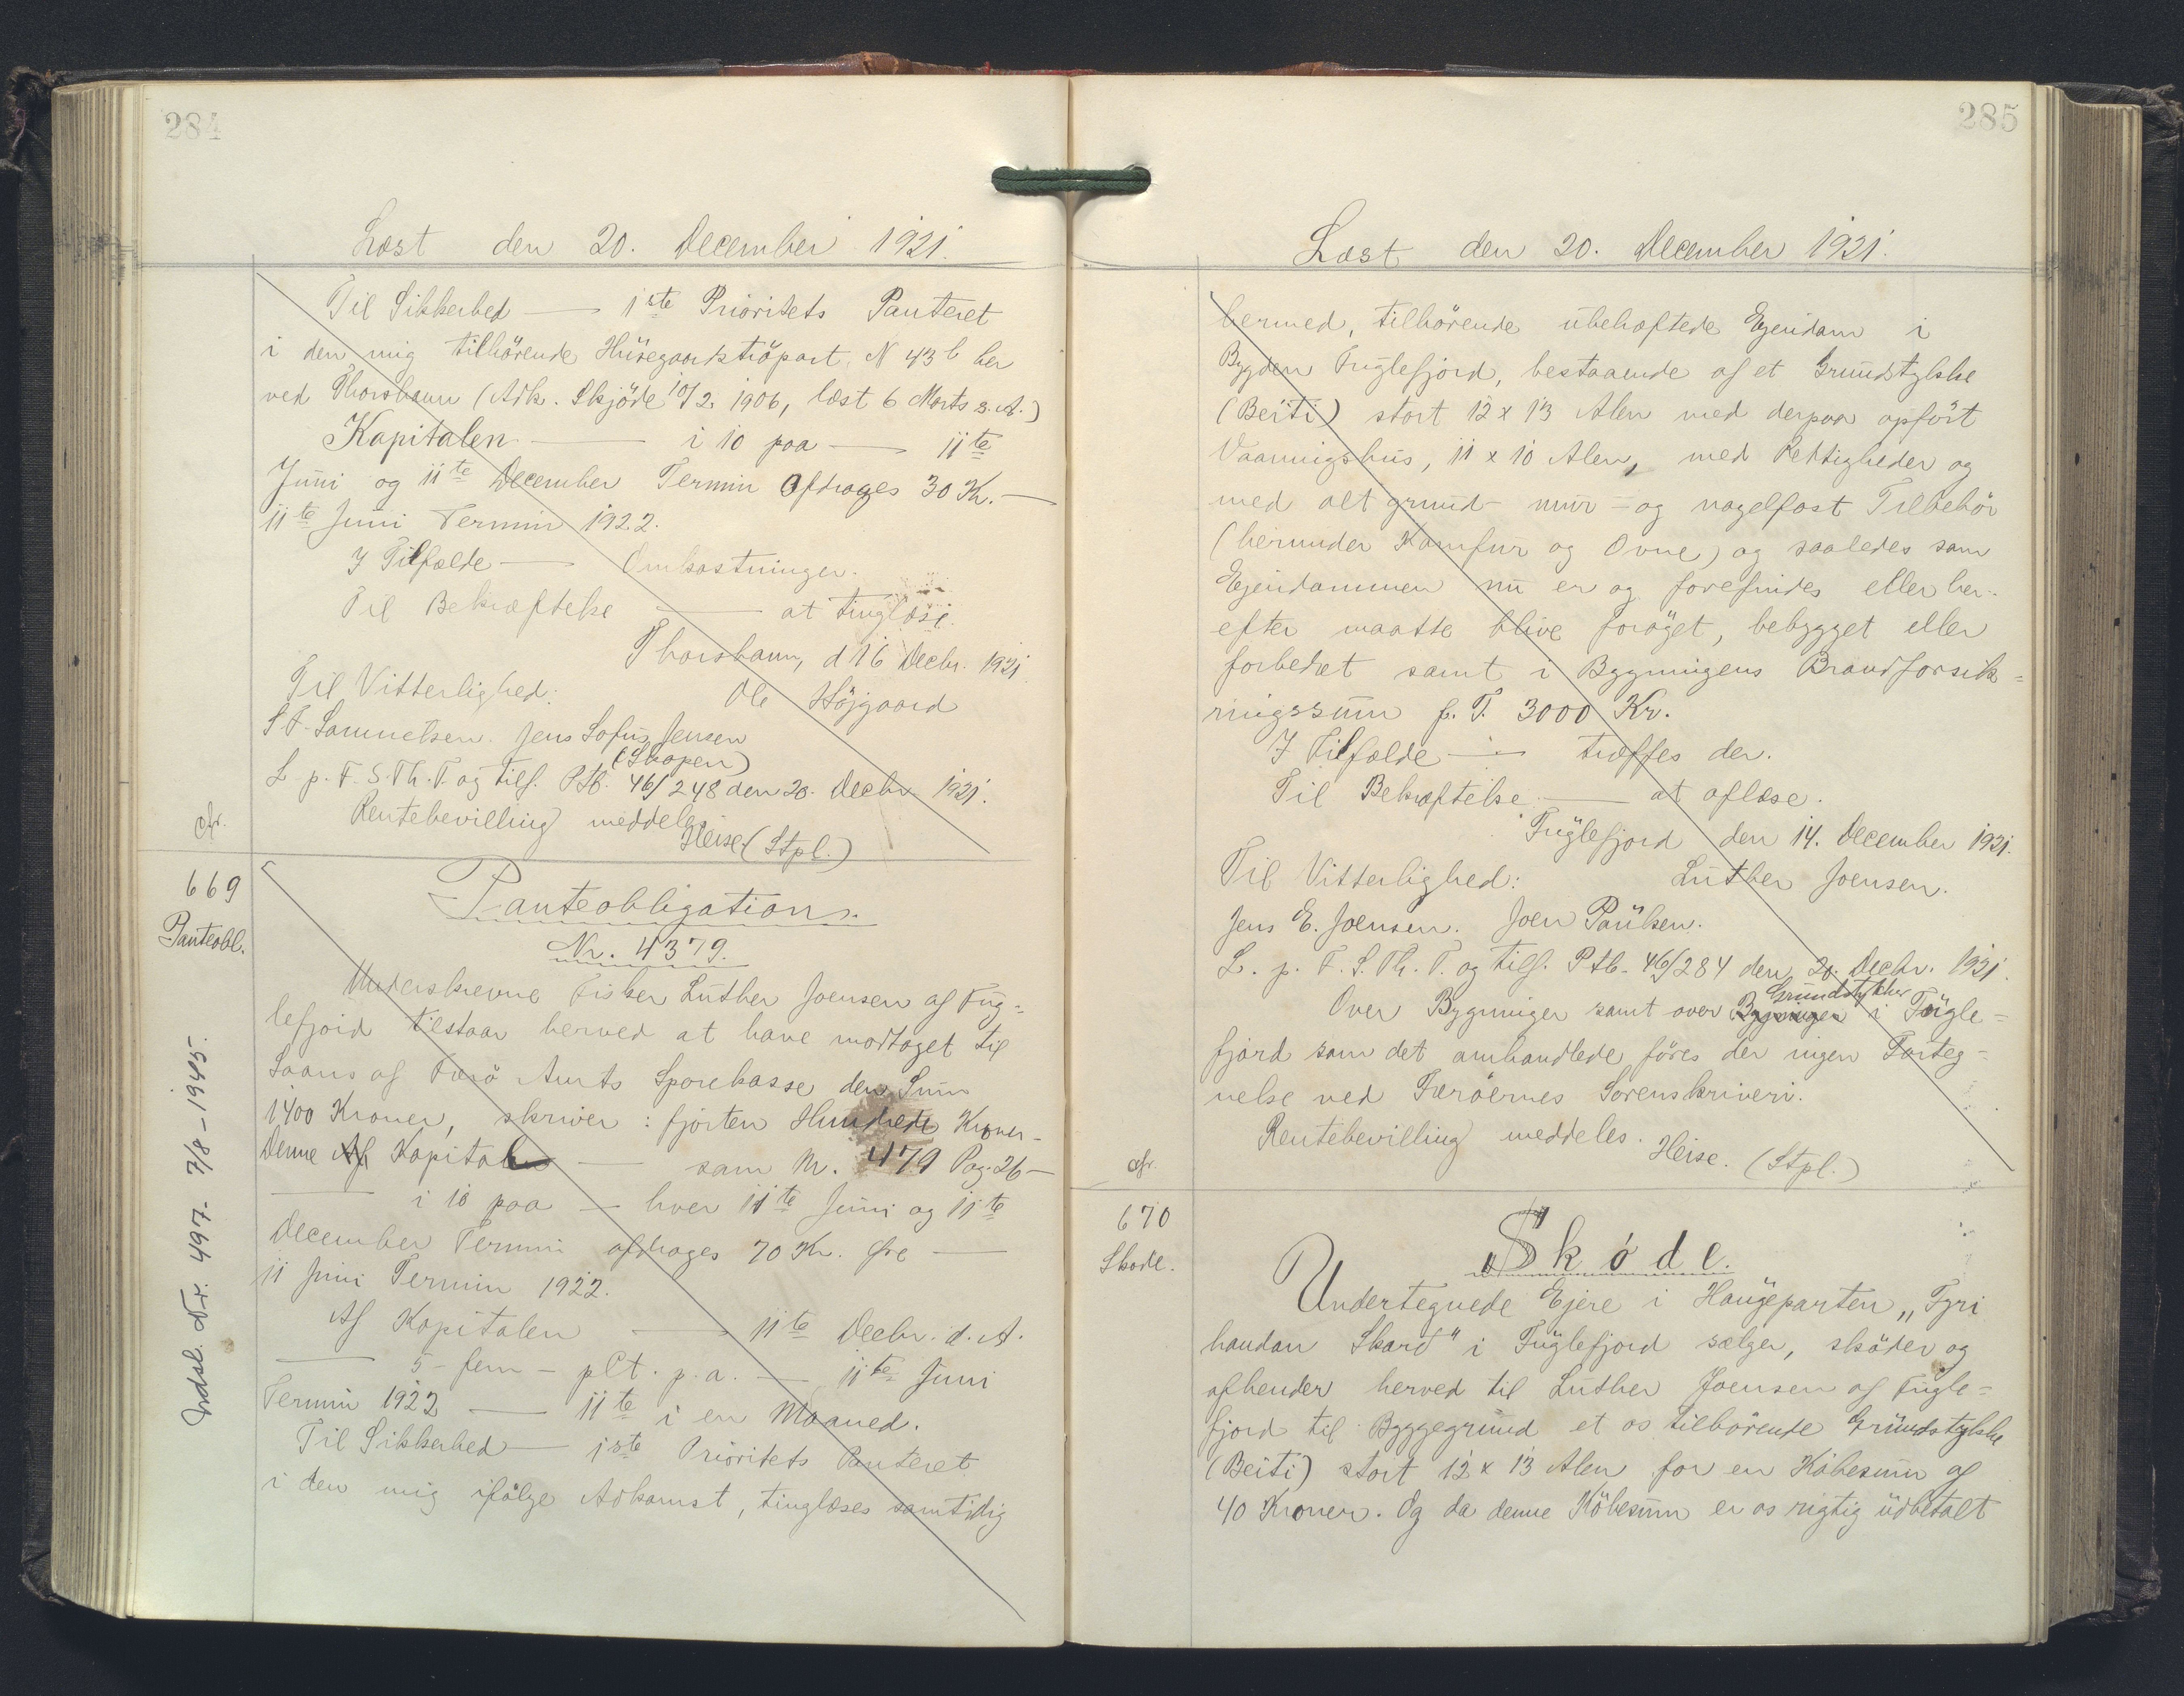 284
Læst den 20. December 1921.
Til Sikkerhed — 1ste Prioritets Panteret
i den mig tilhörende Husegaardströpart, N 43 b her
ved Thorshavn (Adk. Skjöde 10/2 1906, læst 6 Marts s. A.)
Kapitalen — i 10 paa — 11te
Juni og 11te December Termin Afdrages 30 Kr. —
11te Juni Termin 1922.
I Tilfælde — Omkostninger.
Til Bekræftelse — at tinglæse.
Thorshavn, d 16 Decbr. 1921.
Til Vitterlighed: Ole Höjgaard
S F. Samuelsen. Jens Sofus Jensen
(Skopen)
L p. F. S. Th. T. og tilf. Ptb. 46/248 den 20. Decbr 1921.
Rentebevilling meddeles
Heise (Stpl.)
cfr.
669
Panteobl.
Panteobligation.
Nr. 4379.
Underskrevne Fisker Luther Joensen af Fug=
lefjord tilstaar herved at have modtaget til
Laans af Færö Amts Sparekasse den Sum
1400 Kroner, skriver: fjorten Hundrede Kroner —
Denne Af Kapital — som Nr. 479 Pag. 26 —
— i 10 paa — hver 11te Juni og 11te
December Termin afdrages 70 Kr. Öre —
11 Juni Termin 1922.
Af Kapitalen — 11te Decbr. d. A.
— 5 - fem - pCt. p. a. — 11te Juni
Termin 1922 — 11te i en Maaned.
Til Sikkerhed — 1ste Prioritets Panteret
i den mig ifölge Adkomst, tinglæses samtidig
Indsl. Nr. 497. 7/8 - 1945.
285
Læst den 20. December 1921.
hermed, tilhörende ubehæftede Ejendom i
Bygden Fuglefjord, bestaaende af et Grundstykke
(Beiti) stort 12 x 13 Alen med derpaa opfört
Vaaningshus, 11 x 10 Alen, med Rettigheder og
med alt grund- mur - og nagelfast Tilbehör
(herunder Komfur og Ovne) og saaledes som
Ejendommen nu er og forefindes eller her-
efter maatte blive foröget, bebygget eller
forbedret samt i Bygningens Brandforsik=
ringssum p. T. 3000 Kr.
I Tilfælde — træffes der.
Til Bekræftelse — at aflæse.
Fuglefjord den 14. December 1921.
Til Vitterlighed: Luther Joensen.
Jens E. Joensen. Joen Paulsen.
L. p. F. S. Th. T. og tilf. Ptb. 46/284 den 20. Decbr. 1921.
Grundstykker
Over Bygninger samt over Bygninger i Fugle=
fjord som det omhandlede föres der ingen Forteg=
nelse ved Færöernes Sorenskriveri.
Rentebevilling meddeles.
Heise. (Stpl.)
cfr.
670
Skøde.
Skøde.
Undertegnede Ejere i Haugeparten „Fyri
handan Skard" i Fuglefjord sælger, sköder og
afhender herved til Luther Joensen af Fugle=
fjord til Byggegrund et os tilhörende Grundstykke
(Beiti) stort 12 x 13 Alen for en Köbesum af
40 Kroner. Og da denne Köbesum er os rigtig udbetalt